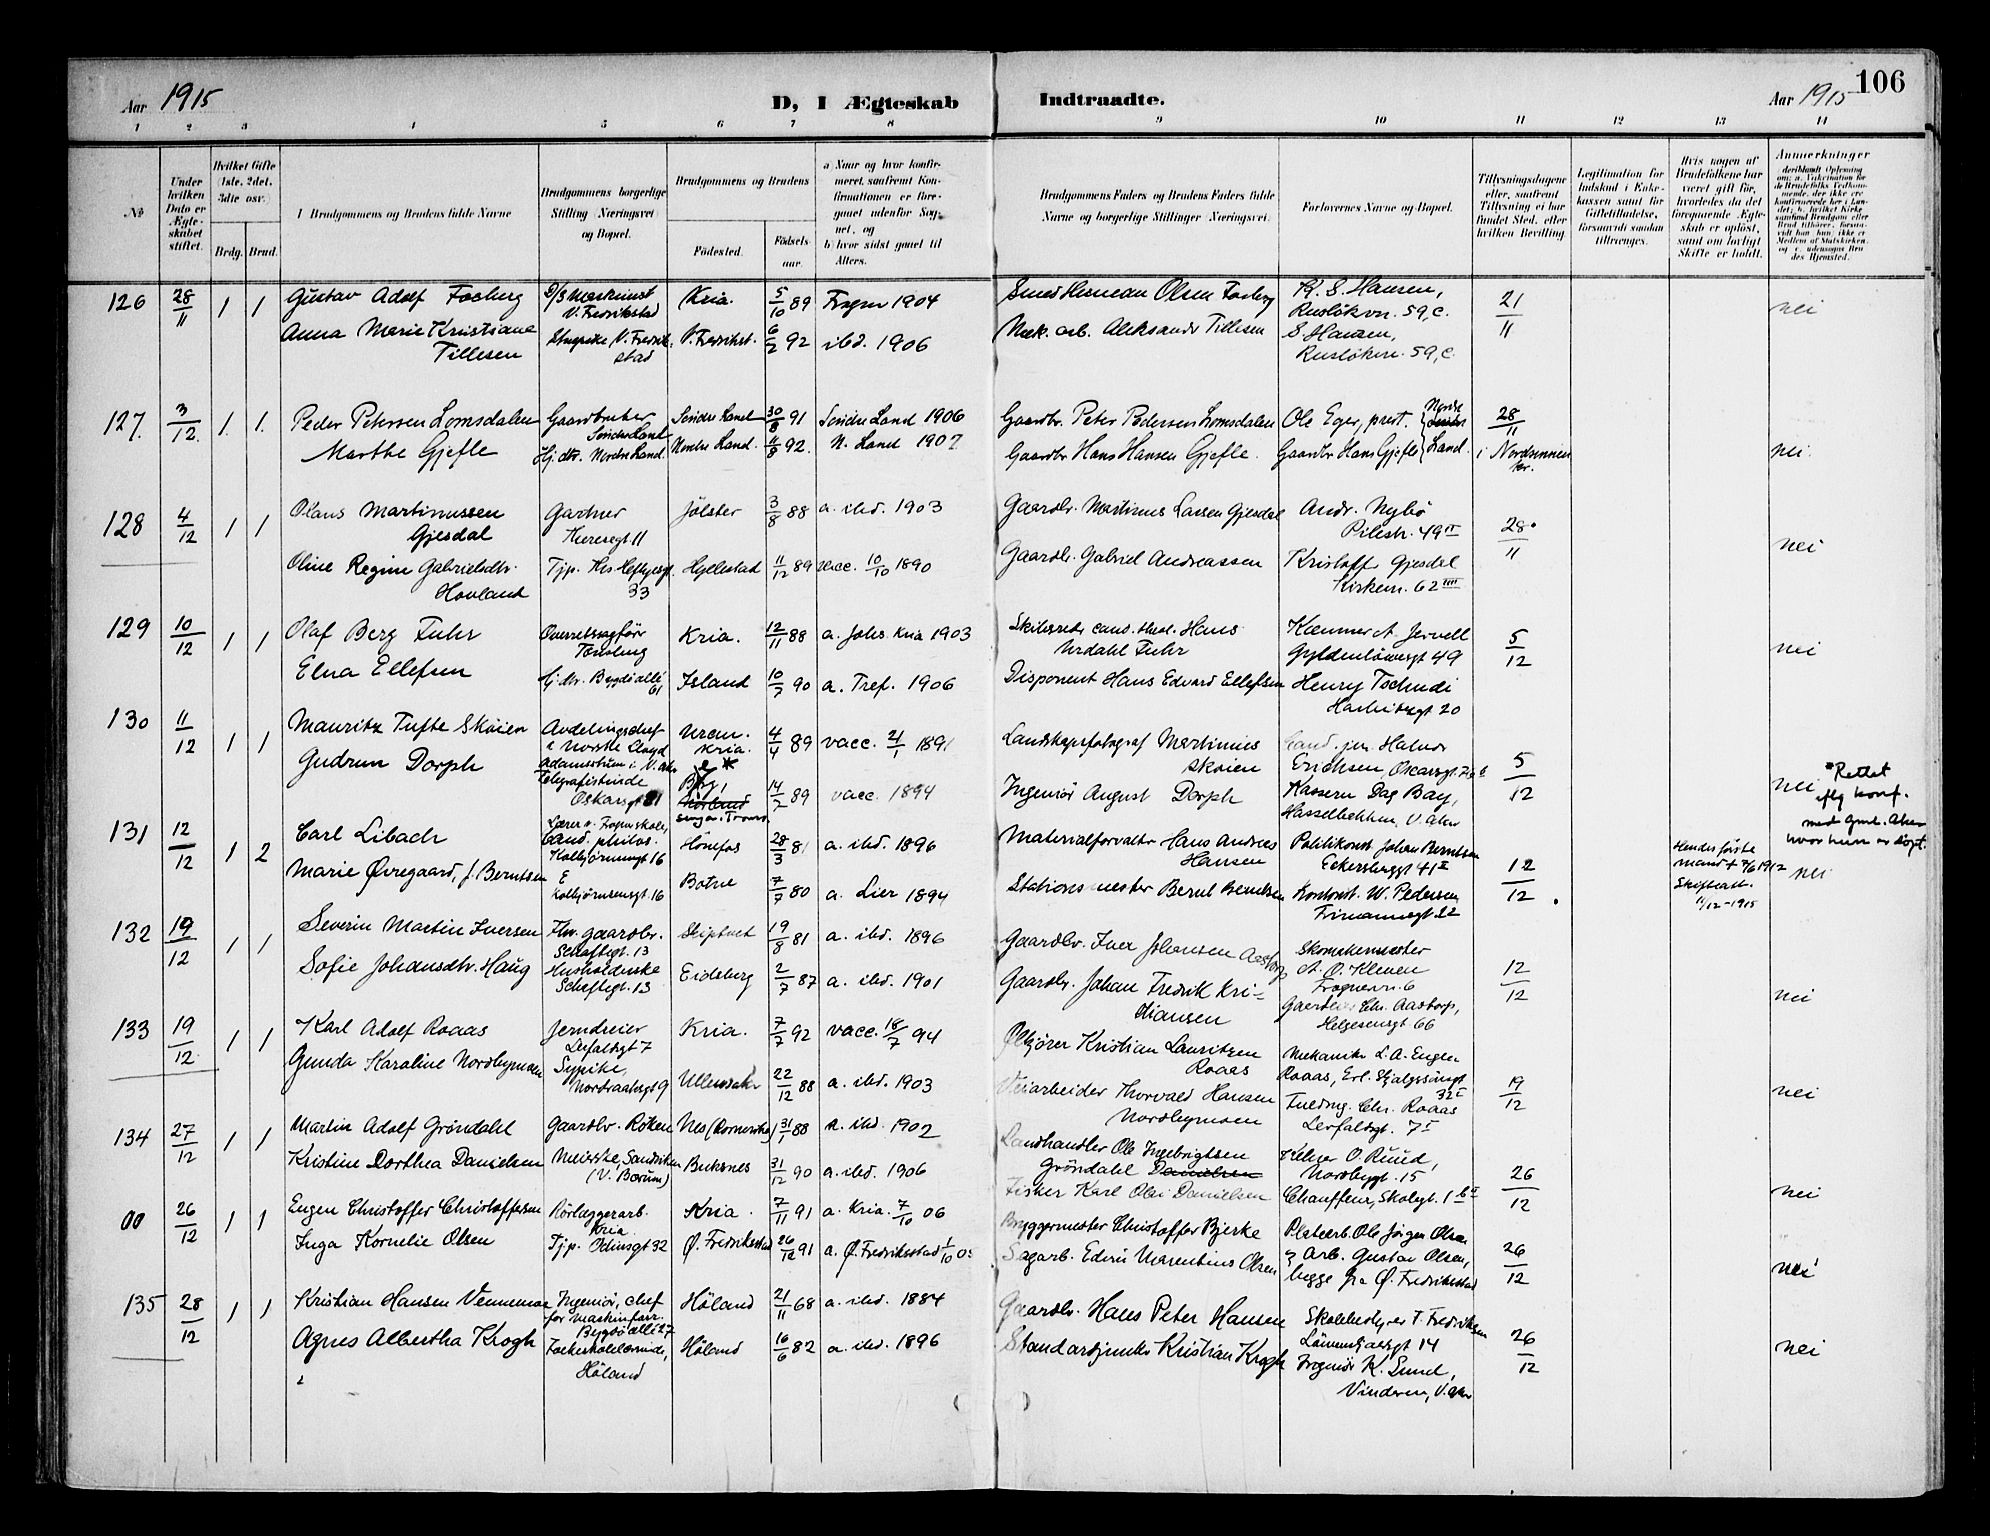 Aar 1915
D, I Ægteskab Indtraadte.
Aar 1915
106
1 2 3 4 5 6 7 8 9 10 11 12 13 14
No
Under hvilken Dato er Ægteskabet stiftet.
Hvilket Gifte (1ste, 2det, 3die osv.)
Brdg. Brud.
Brudgommens og Brudens fulde Navne
Brudgommens borgerlige Stilling (Næringsvei) og Bopæl.
Brudgommens og Brudens
Födested. Födselsaar.
a Naar og hvor konfirmeret, saafremt Konfirmationen er foregaaet udenfor Sognet, og
b hvor sidst gaaet til Alters.
Brudgommens Faders og Brudens Faders fulde Navne og borgerlige Stillinger (Næringsvei).
Forlovernes Navne og Bopæl.
Tillysningsdagene eller, saafremt Tillysning ei har fundet Sted, efter hvilken Bevilling.
Legitimation for Indskud i Enkekassen samt for Giftetilladelse, forsaavidt saadan tiltrænges.
Hvis nogen af Brudefolkene har været gift før, hvorledes da det foregaaende Ægteskab er opløst, samt om lovligt Skifte er holdt.
Anmerkninger
126 28/11 1 1 Gustav Adolf Fosberg
V. Fredrikstad Kria. 5/10 89 Frogn 1904
Smed Herman Olsen Fosberg
K. S. Hansen,
Ruslökvn. 59, c.
21/11 nei
Anna Marie Kristiane
Tillesen
V. Fredrikstad V. Fredrikst. 6/2 92 ibd. 1906
Mek. arb. Aleksander Tillesen
S. Hansen,
Ruslökvn. 59, c.
127. 3/12 1. 1. Peder Petersen Lomsdalen
Gaardbruker
Söndre Land Söndre Land 30/8 91 Söndre Land 1906
Gaardbr. Peter Pedersen Lomsdalen
Ole Eger, prest. Nordre
28/11
Marthe Gjefle
Hj. dtr. Nordre Land. Nordre Land. 11/8 92. N. Land 1907
Gaardbr. Hans Hansen Gjefle.
Gaardbr Hans Gjefle Land.
i Nordsinnen kr. nei.
128 4/12 1 1 Olaus Martinussen
Gjesdal
Gartner
Jölster 3/8 88 a. ibd. 1903
Gaardbr. Martinus Larsen Gjesdal
Andr. Nybö
Pilestr. 49 II
28/11 nei
Oline Regine Gabrielsdtr.
Hovland
Tjp. Ths Heftyesgt. 33
Hyllestad 11/12 89 vacc. 10/10 1890
Gaardbr. Gabriel Andreassen
Kristoff Gjesdal
Kirkevn. 62 IIII
129 10/12 1 1 Olaf Berg Fuhr
Overretssagförer
Tönsberg Kria. 12/11 88 a. Johs. Kria 1903
cand. theol. Hans
Urdahl Fuhr
Kæmner A. Jervell
Gyldenlövesgt 49
5/12 nei
Elna Ellefsen
Hj. dtr. Bygdö allé 61
Island 10/7 90 a. Tref. 1906
Disponent Hans Edvard Ellefsen
Henry Tschudi
Harbitzgt 20
130 11/12 1 1 Mauritz Tufte Sköien
Avdelingschef
i Norske Lloyd
Kria. 4/4 89 vacc. 21/1 1891
Landskapsfotograf Martinius
Skøien
Cand. jur. Halvor
Erichsen, Oscarsgt.
5/12 nei
Gudrun Dorph
Telegrafistinde
Oskarsgt 81
14/2 89 vacc. 1894
Ingeniör August Dorph
Kasserer Dag Bay,
Hasselbakken, V. Aker
*Rettet
eftg konf.
med Gml. Aker
hvor hun er döpt.
131 12/12 1 2 Carl Libach
Cand. philos.
Kolbjörnsensgt 16
Hönefos 28/3 81 a. ibd. 1896
Materialforvalter Hans Andreas
Hansen
Politikonst. Johan Berntsen
Eckersbergsgt 41 II
12/12
Hendes förste
mand + 7/6 1912
Skifteatt.
11/12-1915
nei
Marie Øvregaard, f. Berntsen
E
Kolbjörnsensgt 16
Botne 7/7 80 a. Lier 1894
Stationsmester Bernt Berntsen
Kontorist W. Pedersen
Frimannsgt 22
132 19/12 1 1 Severin Martin Iversen
Fhv. gaardbr.
Schaftlgt. 13
Skiptvet 19/8 81 a. ibd. 1896
Gaardbr. Iver Johansen Aastorp
Skomakermester
A. O. Kleven
Frognervn. 6
12/12 nei
Sofie Johansdtr. Haug
Husholderske
Schaftlgt. 13
Eidsberg 2/7 87 a. ibd. 1901
Gaardbr. Johan Fredrik Kristiansen
Chr. Aastorp,
Helgesensgt 66
133 19/12 1 1 Karl Adolf Roaas
Jerndreier
Lerfaldsgt 7
Kria. 7/7 92 vacc. 18/7 94
Ølkjører Kristian Lauritzen
Roaas
Mekaniker L. A. Eugen
Roaas, Erl. Skjalgssöngt
32 I
19/12 nei
Gunda Karoline Nordbymoen
Sypike,
Nordraaksgt 9
Ullensaker 22/12 88 a. ibd. 1903
Veiarbeider Thorvald Hansen
Nordbymoen
Chr. Roaas
Lerfaldsgt. 7 I
134 27/12 1 1 Martin Adolf Gröndahl
Gaardbr. Röken Nes (Romerike) 31/1 88 a. ibd. 1902
Landhandler Ole Ingebrigtsen
Gröndahl Danielsen
O. Ruud,
Nordbygt. 15
26/12 nei
Kristine Dorthea Danielsen
Meierske, Sandviken
(V. Bærum)
Buksnes 31/12 90 a. ibd. 1906
Fisker Karl Olai Danielsen
Chauffeur, Skolegt. 1
00 26/12 1 1 Eugen Christoffer Christoffersen
Rörlæggerarb.
Kria
Kria. 7/11 91 a. Kria. 7/10 06
Bryggermester Christoffer Bjerke
Platearb. Ole Jörgen Olsen
26/12 nei
Inga Kornelie Olsen
Tjp. Odinsgt 32
Ø. Fredriksstad 26/12 91 a. Ø. Fredriksstad 1/10 0
Sagarb. Edvin Marentius Olsen
& Arb. Gustav Olsen,
begge fra Ø. Fredriksstad
135 28/12 1 1 Kristian Hansen Vennemoe
Ingeniör, chef
for
Bygdö allé 27
Höland 21/11 68 a. ibd. 1884
Gaardbr. Hans Peter Hansen
Skolebestyrer T. Fredriksen
14
26/12 nei
Agnes Albertha Krogh
Höland
Höland 16/6 82 a. ibd. 1896
Kristian Krogh
Ingeniör K. Lund,
Vinderen, V. Aker